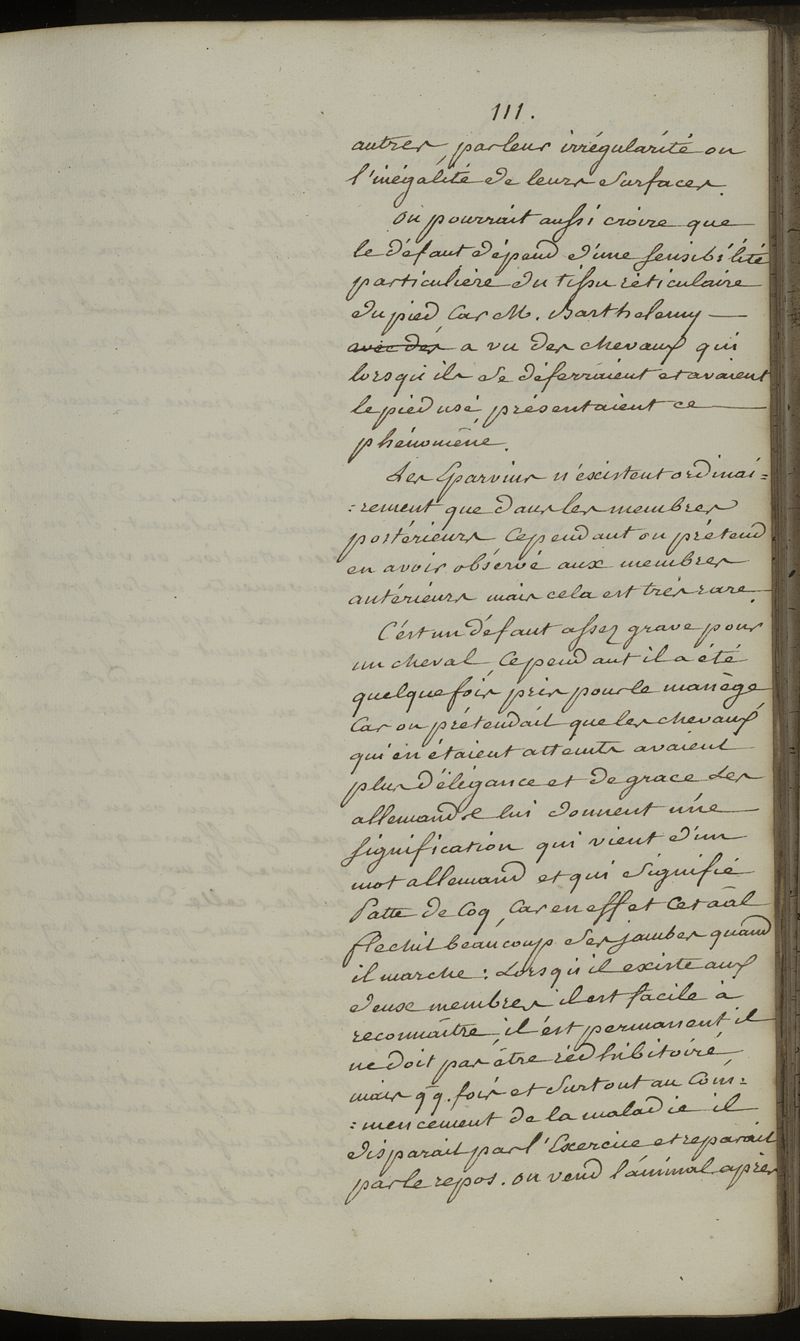 111.
autres, par leur irrégularité ou
l'inégalité de leurs surfaces.
On pourrait aussi croire que
le défaut dépend d'une sensibilité
particulière du tissu réticulaire
du pied Car M. Barthelemy —
avec des a vu des chevaux qui
lorsqu'ils se déferraient et avaient
le pied usé, présentaient ce —
phénomène.
Les Eparvins n'existent ordinai=
=rement que dans les membres
postérieurs Cependant on prétend
en avoir observé aux membres
antérieurs mais cela est très rare.
C'est un défaut assez grave pour
un cheval, Cependant il a été
quelquefois pris pour le manège
Car on prétendait que les chevaux
qui en étaient atteints avaient
plus d'élégance et de grace Les
allemands lui donnent une
signification qui vient d'un
mot allemand et qui signifie
Patte de Coq, Car en effet Cet aâl
flechit beaucoup ses jambes quand
il marche : Lorsqu'il existe aux
deux membres il est facile à
reconnaître, il est permanent il
ne doit pas être rédhibitoire,
mais qq. fois et surtout au Com=
=mencement de la maladie il
disparait par l'Exercice et reparait
par le repos. on vend l'animal après